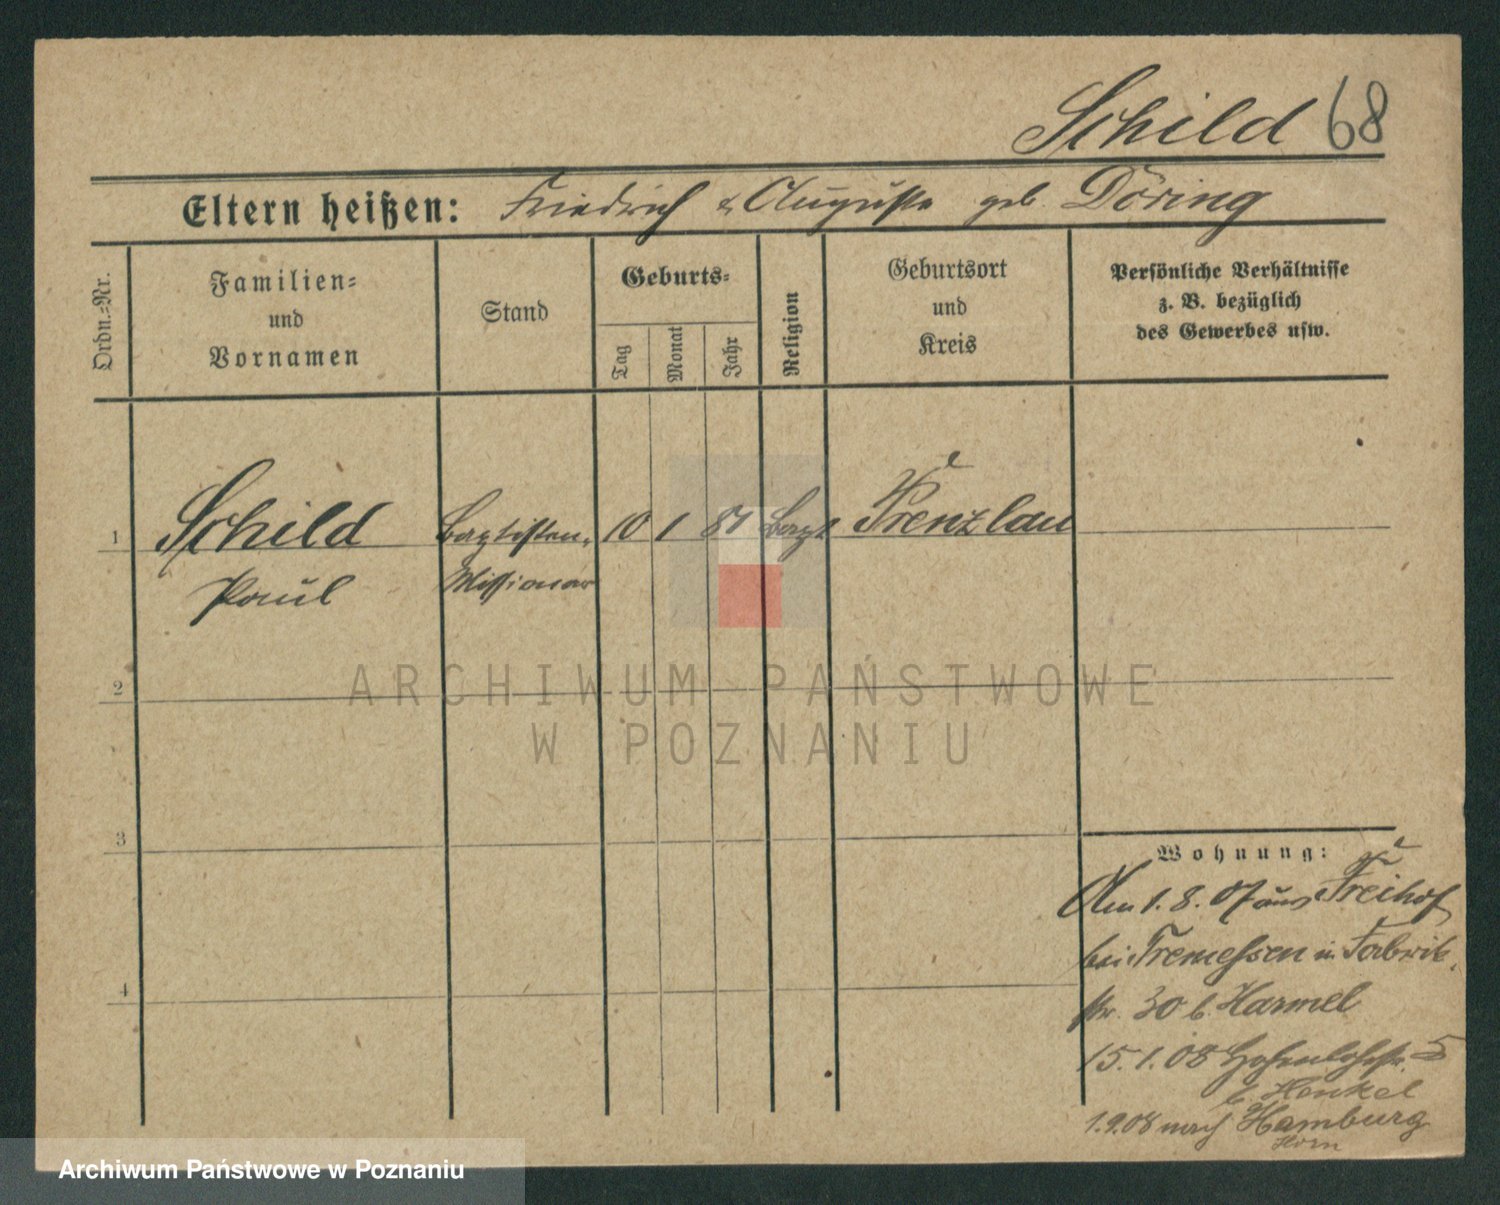 Schild 68
Eltern heißen: Friedrich & Auguste geb. Döring
Ordn.-Nr.
Familien-
und
Vornamen
Stand
Geburts-
Tag
Monat
Jahr
Religion
Geburtsort
und
Kreis
Persönliche Verhältnisse
z. B. bezüglich
des Gewerbes usw.
1 Schild Baptisten- 10 1 81 Bapt Prenzlau
Paul Missionar
2
3
4
Wohnung:
Am 1.8.07 aus Freihof
bei Tremessen in Fabrik
str. 30 b. Harmel
15.1.08 Hohenlohestr. 5
b. Henkel
1.9.08 nach Hamburg
Horn
ARCHIWUM PAŃSTWOWE
W POZNANIU
Archiwum Państwowe w Poznaniu